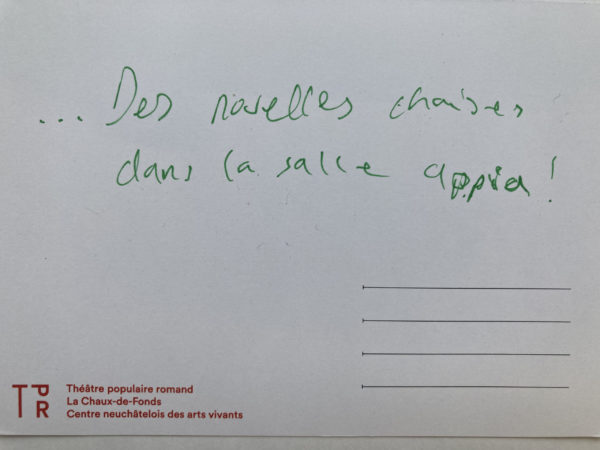 ... Des novelles chaises
dans la salle appia !
TPR
Théâtre populaire romand
La Chaux-de-Fonds
Centre neuchâtelois des arts vivants